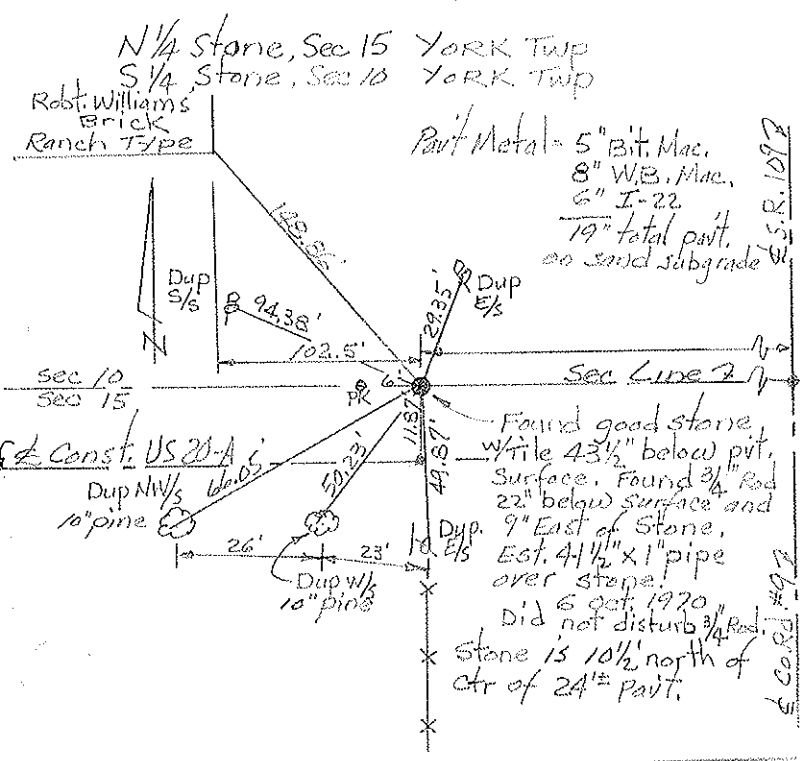 N 1/4 Stone, Sec 15 YORK Twp
S 1/4 Stone, Sec 10 YORK Twp
Robt. Williams
Brick
Ranch Type
Pav't Metal = 5" Bit. Mac.
8" W.B. Mac.
6" I-22
19" total pavt.
on sand subgrade
S.R. 109
148.86'
Dup
S/s
94.38'
Dup
E/s
29.35'
N
102.5'
6'
Sec 10
Sec 15
PK
Sec Line
11.87'
49.87'
Const. US 20-A
66.05'
50.23'
Dup NW/s
10" pine
26'
23'
Dup W/s
10" pine
Dup.
E/s
Found good stone
w/tile 43 1/2" below pvt.
Surface. Found 3/4" Rod
22" below surface and
9" East of Stone.
Est. 41 1/2" x 1" pipe
over stone.
6 Oct. 1970
Did not disturb 3/4" Rod.
Stone is 10 1/2' north of
Ctr of 24'± pavt.
Co Rd. #9